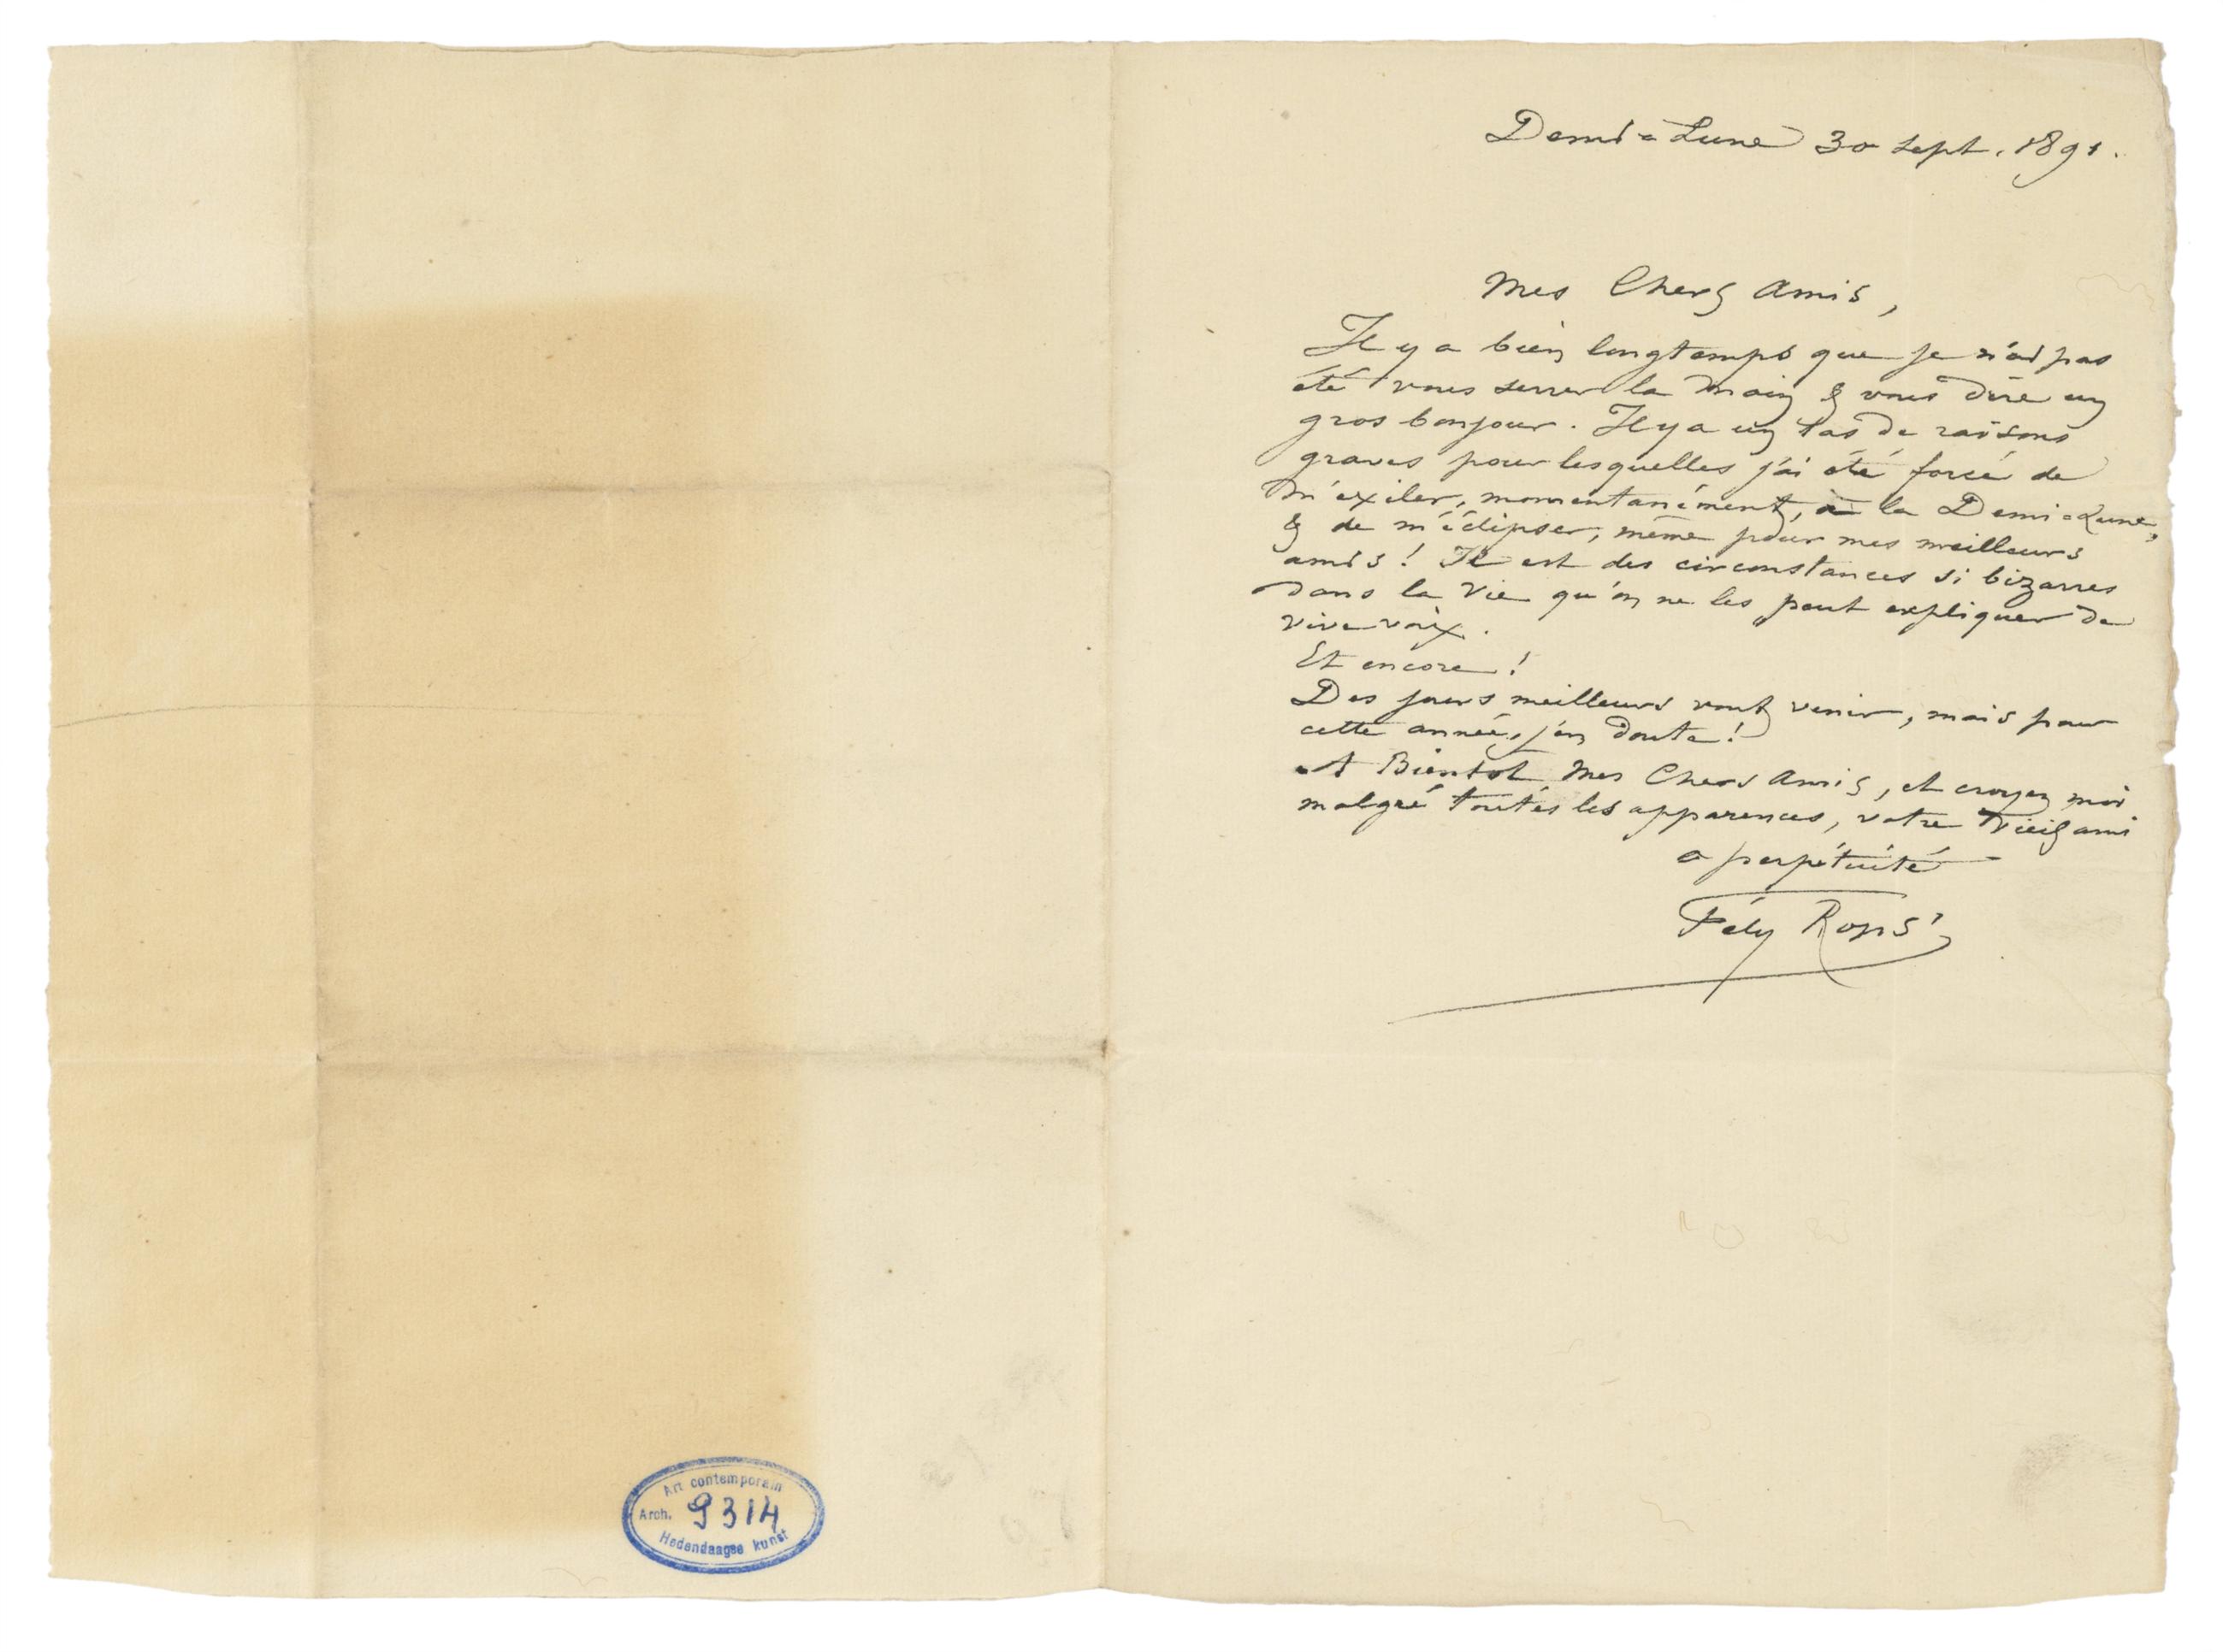 Demi-Lune 30 sept. 1891.
Mes Chers Amis,
Il y a bien longtemps que je n'ai pas
été vous serrer la main & vous dire un
gros bonjour. Il y a un tas de raisons
graves pour lesquelles j'ai été forcé de
m'exiler, momentanément, à la Demi-Lune,
& de m'éclipser, même pour mes meilleurs
amis ! Il est des circonstances si bizarres
dans la vie qu'on ne les peut expliquer de
vive voix.
Et encore !
Des jours meilleurs vont venir, mais pour
cette année, j'en doute !
A Bientot Mes Chers Amis, et croyez moi
malgré toutes les apparences, votre vieil ami
a perpétuité
Fély Rops
Art contemporain
Arch. 9314
Hedendaagse kunst